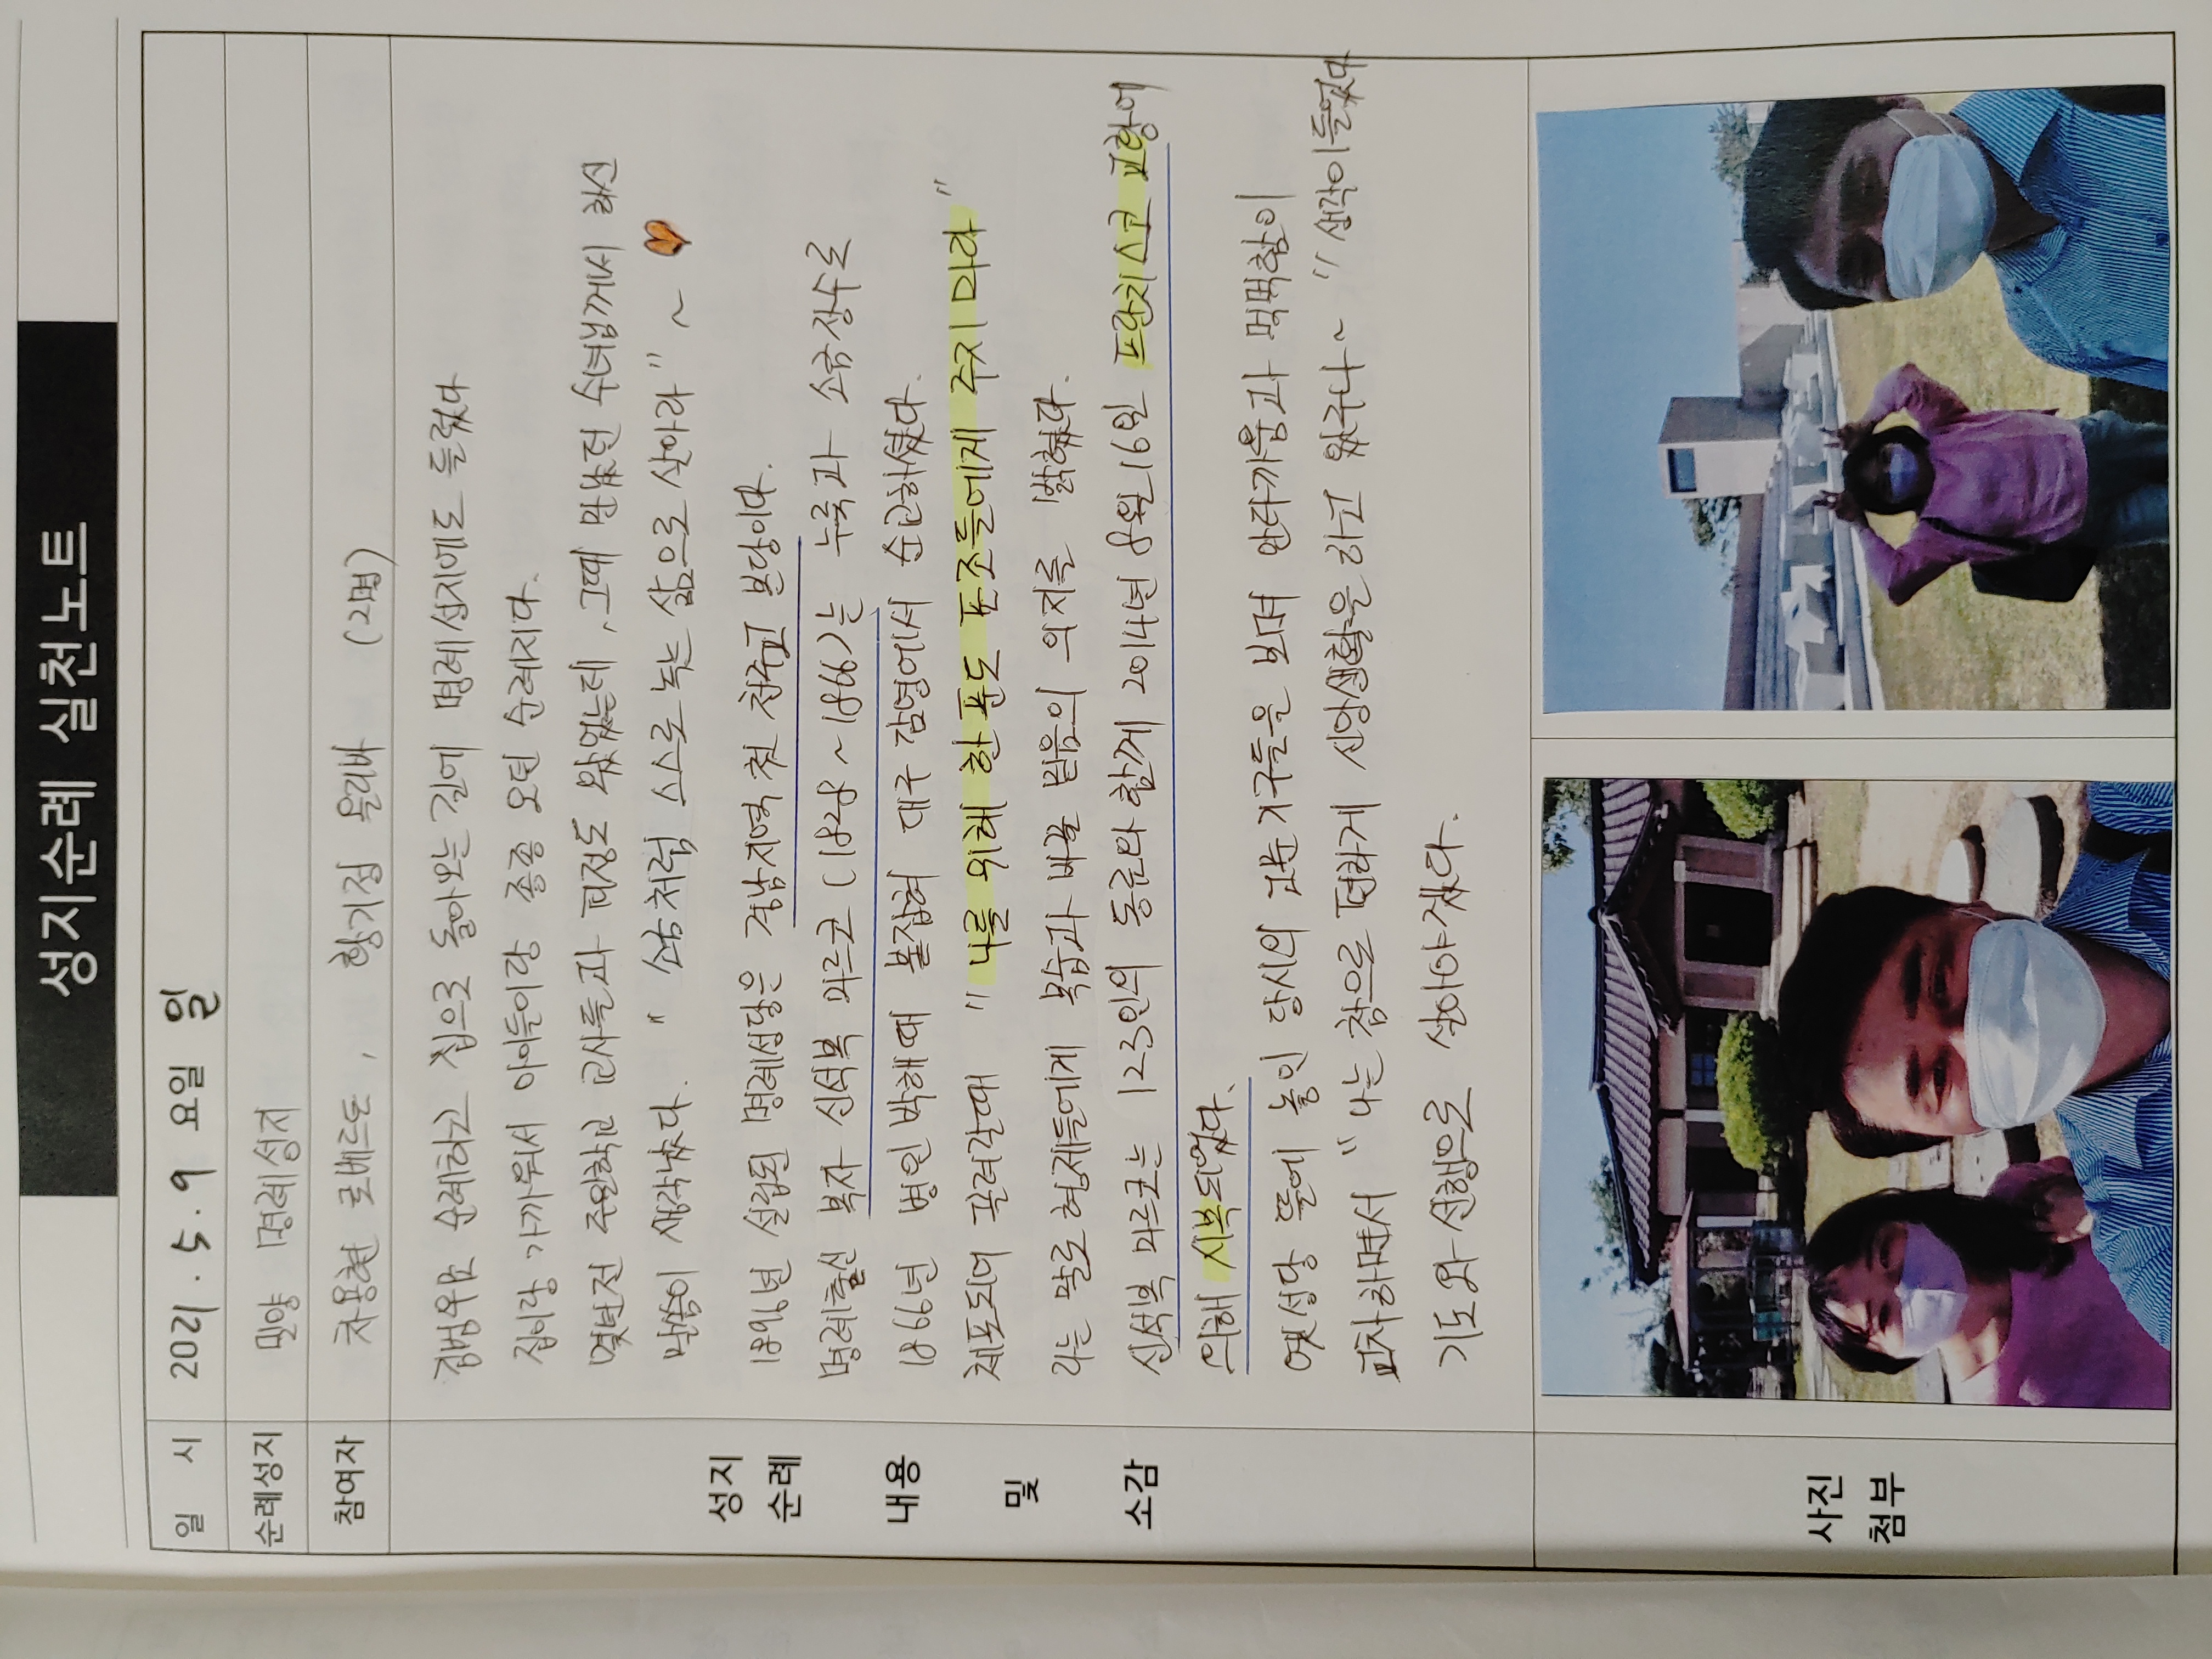 성지순례 실천노트
일 시 2021. 5. 9 요일 일
순례성지 밀양 명례성지
참여자 차용현 로베르토, 황기점 올리바 (2명)
성지 순례 내용 및 소감
김범우묘 순례하고 집으로 돌아오는 길에 명례성지에도 들렀다
집이랑 가까워서 아이들이랑 종종 오던 순례지다.
몇년전 주일학교 교사들과 피정도 왔었는데, 그때 만났던 수녀님께서 하신
말씀이 생각났다. " 소금처럼 스스로 녹는 삶으로 살아라" ~
1896년 설립된 명례성당은 경남지역 첫 천주교 본당이다.
명례출신 복자 신석복 마르코 (1828 ~ 1866)는 누룩과 소금장수로
1866년 병인박해때 붙잡혀 대구 감영에서 순교하셨다.
체포되어 끌려갈때 " 나를 위해 한 푼도 포졸들에게 주지 마라 "
라는 말로 형제들에게 목숨과 바꿀 믿음의 의지를 밝혔다.
신석복 마르코는 123인의 동료와 함께 2014년 8월 16일 프란치스코 교황에
의해 시복되었다.
옛성당 뜰에 놓인 당시의 고문기구들을 보며 안타까움과 먹먹함이
교차하면서 " 나는 참으로 편하게 신앙생활을 하고 있구나~ " 생각이 들었다
기도와 선행으로 살아야겠다.
사진 첨부